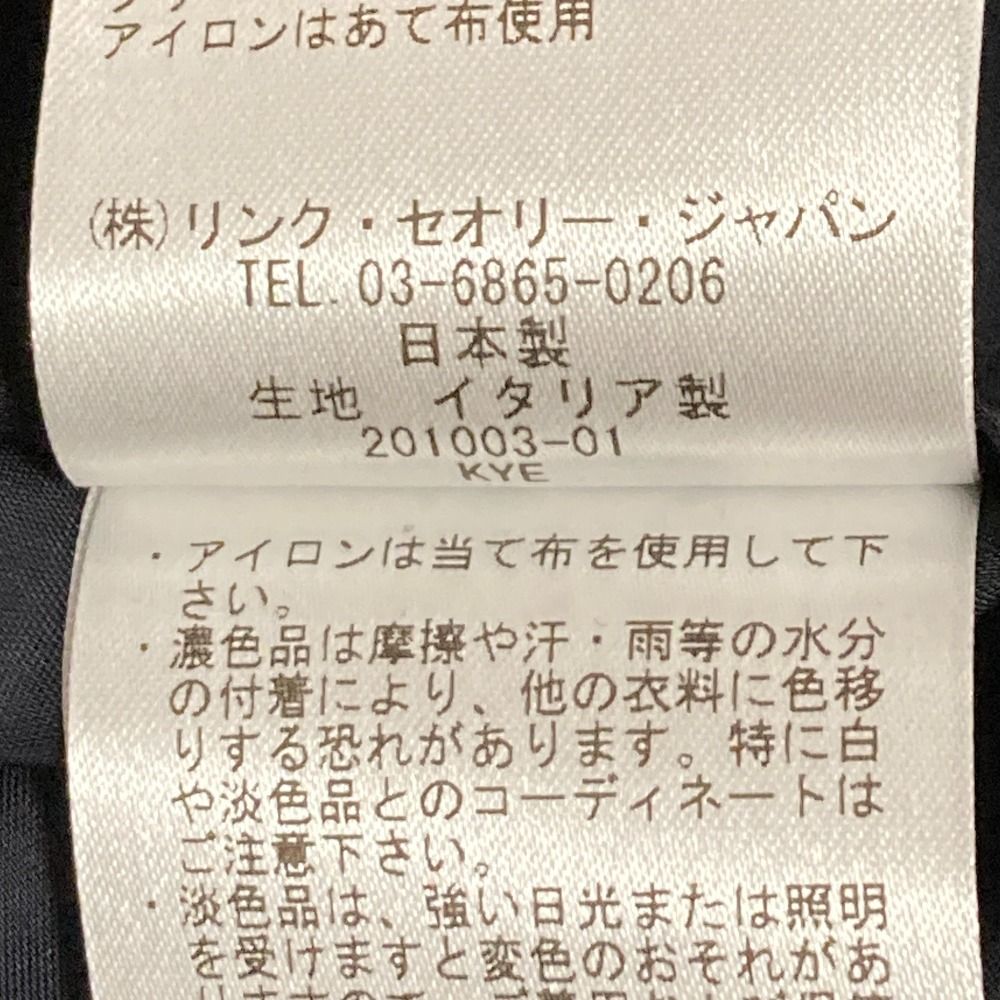 アイロンはあて布使用
(株)リンク・セオリー・ジャパン
TEL. 03-6865-0206
日本製
生地 イタリア製
201003-01
KYE
・アイロンは当て布を使用して下
さい。
・濃色品は摩擦や汗・雨等の水分
の付着により、他の衣料に色移
りする恐れがあります。特に白
や淡色品とのコーディネートは
ご注意下さい。
・淡色品は、強い日光または照明
を受けますと変色のおそれがあ